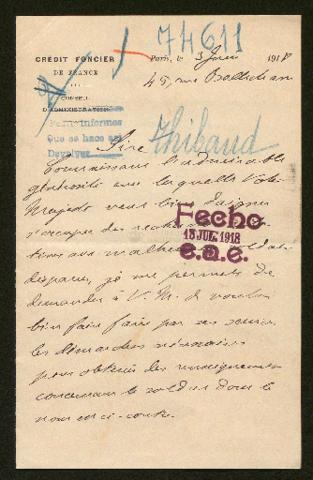 74611
CRÉDIT FONCIER
DE FRANCE
Paris, le 3 Juin 1918
CONSEIL
D'ADMINISTRATION
45, rue
Para informes
Que se hace así
Devolver
Thibaud
Sire
Connaissant l'admirable
générosité avec laquelle Votre
Majesté veut bien daigner
s'occuper des recherches
aux malheureux soldats
disparus, je me permets de
demander à V. M. de vouloir
bien faire faire par ses services
les démarches nécessaires
pour obtenir des renseignements
concernant le soldat dont le
nom est ci-contre.
Fecho
15 JUL. 1918
e.a.e.